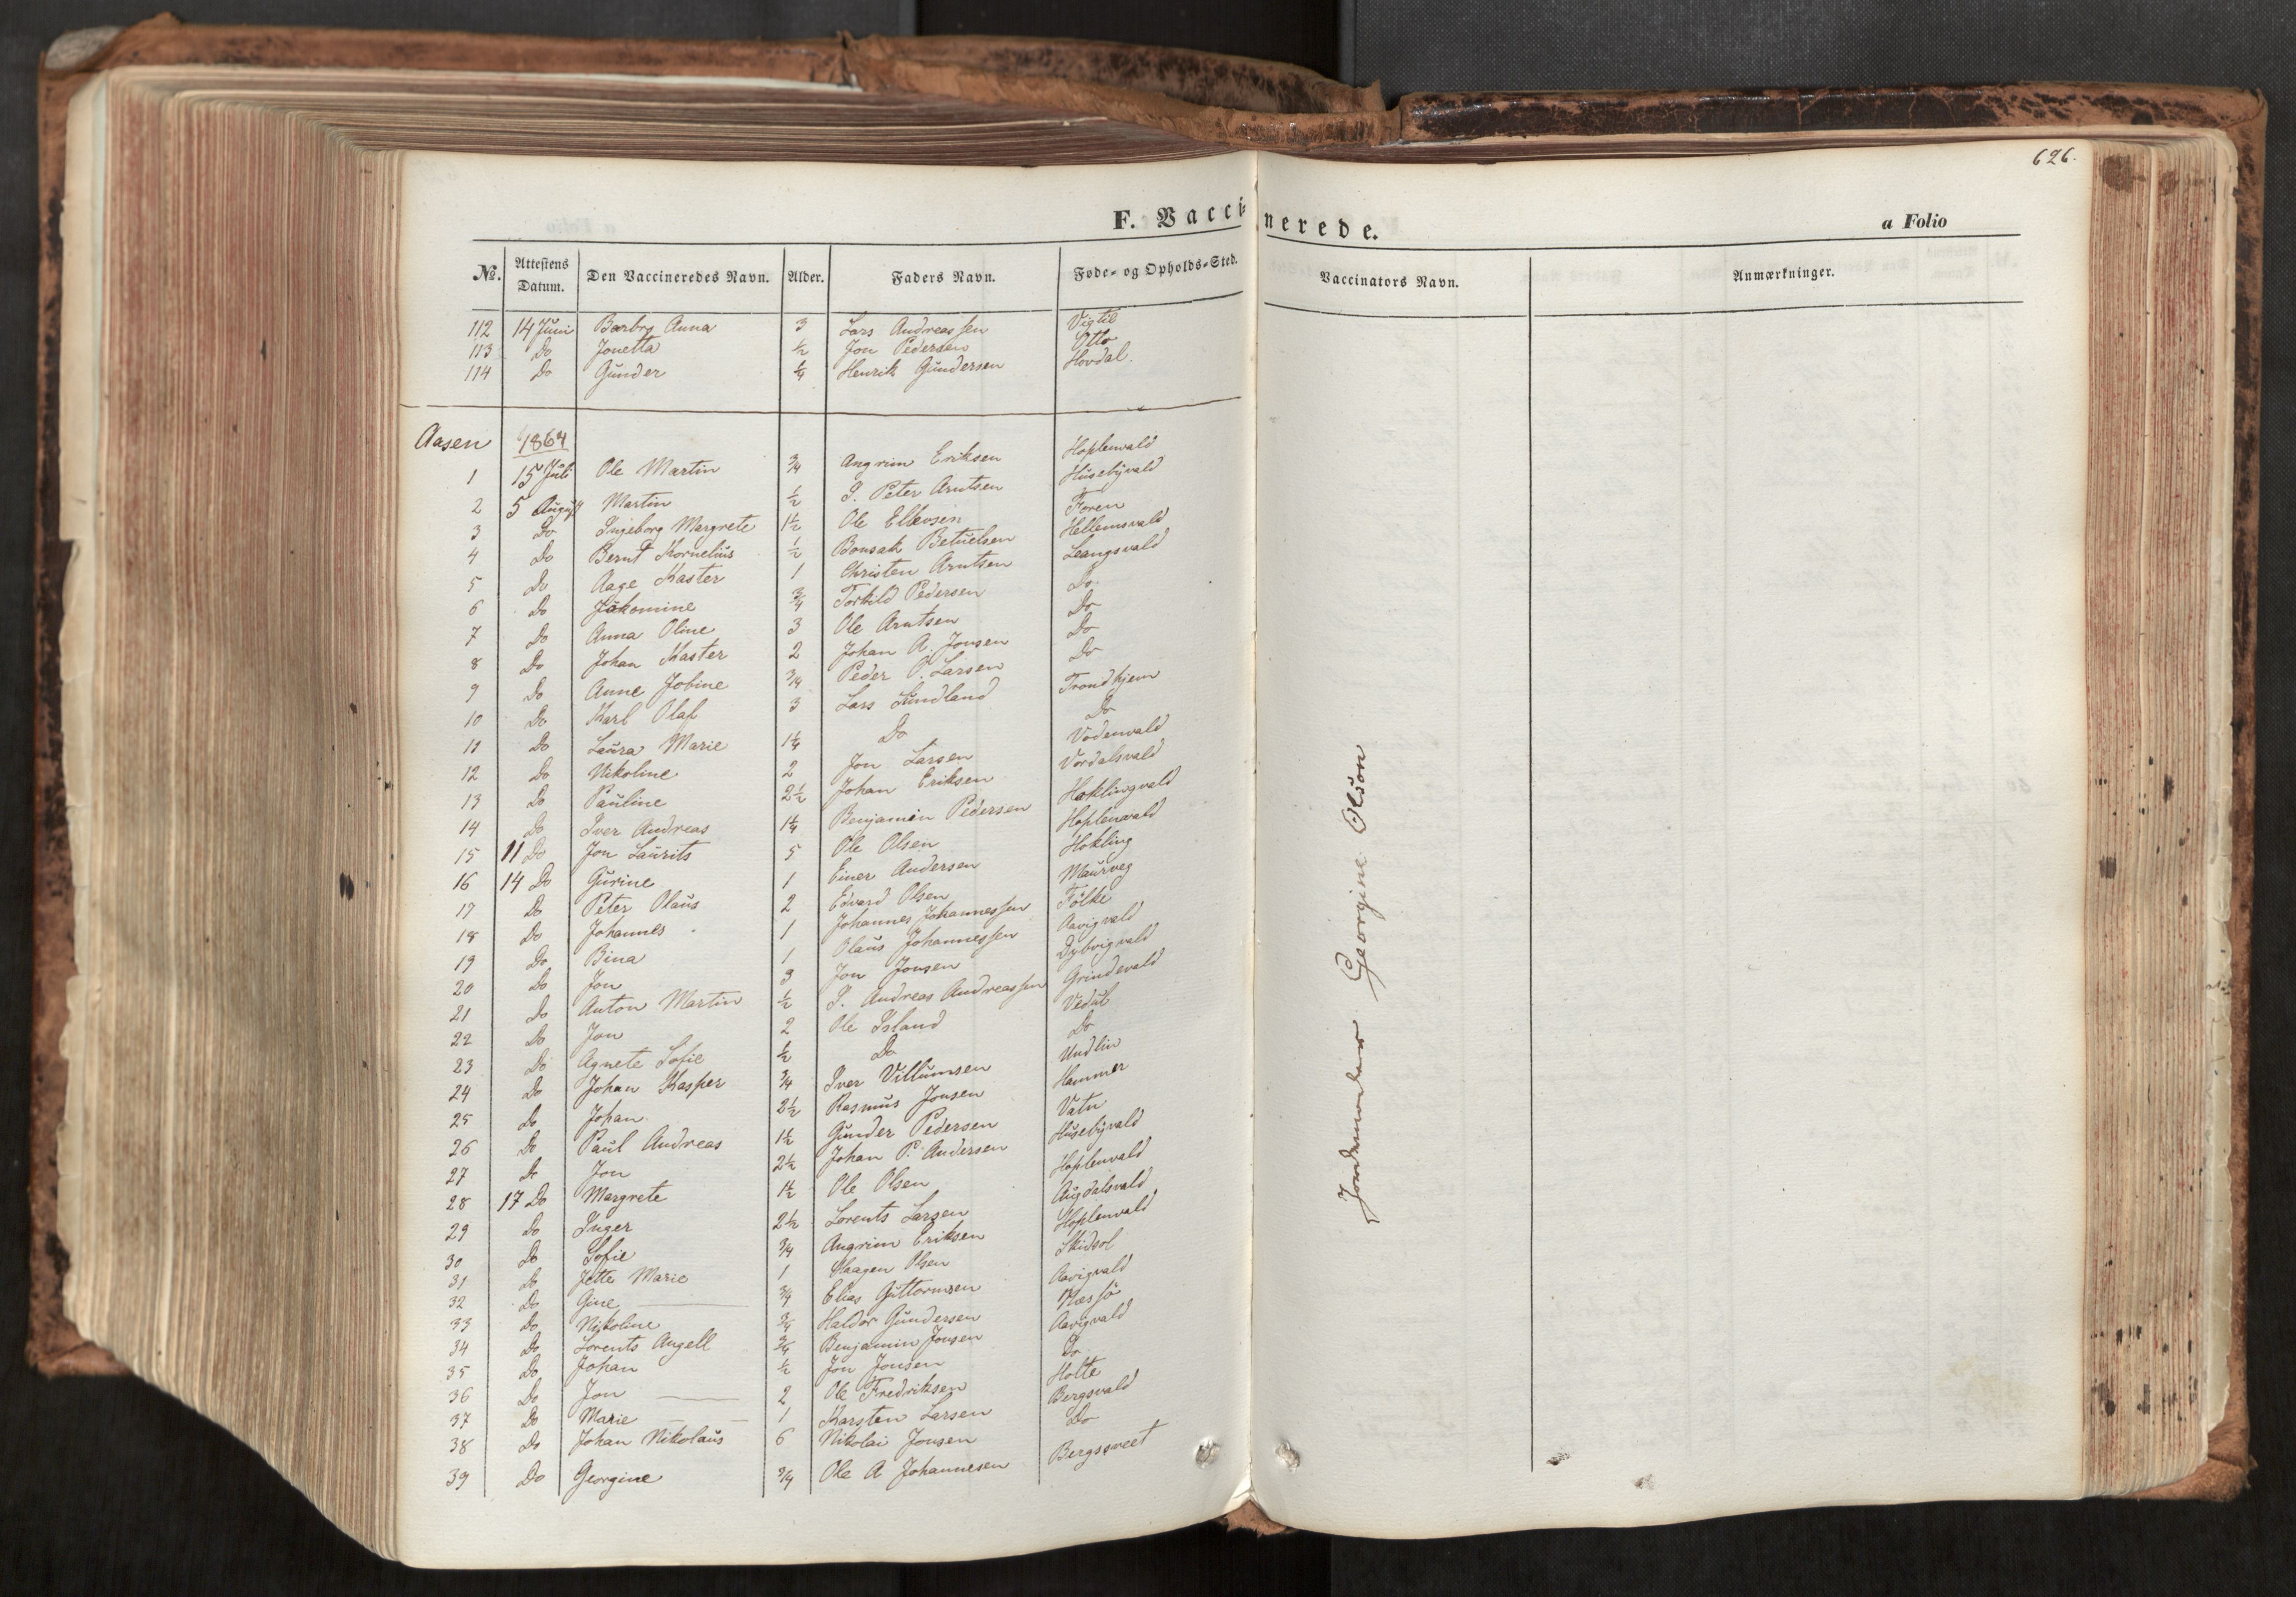 626.
F. Vaccinerede.
a Folio
No. Attestens Datum. Den Vaccineredes Navn. Alder. Faders Navn. Føde- og Opholds-Sted. Vaccinators Navn. Anmærkninger.
112 14 Juni Barbro Anna 3 Lars Andreassen Vigtil
113 Do Jonetta ½ Jon Pedersen Otto
114 Do Gunder ¼ Henrik Gundersen Hovdal.
Aasen 1864
1 15 Juli Ole Martin ¾ Angrim Eriksen Hoplenvald
2 5 August Martin ½ P. Peter Arntsen Husebyvald
3 Do Ingeborg Margrete 1½ Ole Ellevsen Foren
4 Do Bernt Kornelius ½ Bonsak Betuelsen Hellemsvald
5 Do Aage Kaster 1 Christen Arntsen Leangsvald
6 Do Jakomine ¾ Torkild Pedersen Do.
7 Do Anna Oline 3 Ole Arntsen Do
8 Do Johan Kaster 2 Johan A. Jonsen Do
9 Do Anne Jobine ¾ Peder O. Larsen Do
10 Do Karl Olaf 3 Lars Lundland Trondhjem
11 Do Laura Marie 1¼ Do Do
12 Do Nikoline 2 Jon Larsen Vodenvald
13 Do Pauline 2½ Johan Eriksen Vordalsvald
14 Do Iver Andreas 1¼ Benjamin Pedersen Hoklingvald
15 11 Do Jon Laurits 5 Ole Olsen Hoplenvald
16 14 Do Gurine 1 Einer Andersen Hokling
17 Do Peter Olaus 2 Edvard Olsen Maurveg
18 Do Johannes 1 Johannes Johannessen Følke
19 Do Bina 1 Olaus Johannessen Aavigvald
20 Do Jon 3 Jon Jonsen Dybvigvald
21 Do Anton Martin ½ P. Andreas Andreassen Grindevald
22 Do Jon 2 Ole Island Vedul
23 Do Agnete Sofie ½ Do Do
24 Do Johan Kasper ¾ Iver Villumsen Undlin
25 Do Johan 2½ Rasmus Jonsen Hammer
26 Do Paul Andreas 1½ Gunder Pedersen Vatn
27 Do Jon 2½ Johan P. Andersen Husebyvald
28 17 Do Margrete 1½ Ole Olsen Hoplenvald
29 Do Inger 2½ Lorents Larsen Augdalsvald
30 Do Sofie ¾ Angrim Eriksen Hoplenvald
31 Do Jette Marie 1 Haagen Olsen Skidsol
32 Do Gine ¾ Elias Guttormsen Aavigvald
33 Do Nikoline ¾ Haldor Gundersen
34 Do Lorents Angell ¾ Benjamin Jonsen Aavigvald
35 Do Johan ½ Jon Jonsen Do
36 Do Jon 2 Ole Fredriksen Holte
37 Do Marie 1 Karsten Larsen Bergsvald
38 Do Johan Nikolaus 6 Nikolai Jonsen Do
39 Do Georgine ¾ Ole A Johannesen
Jordemoder Georgine Olson